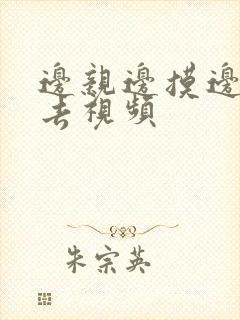 邊親邊摸邊
去視頻
朱宗英